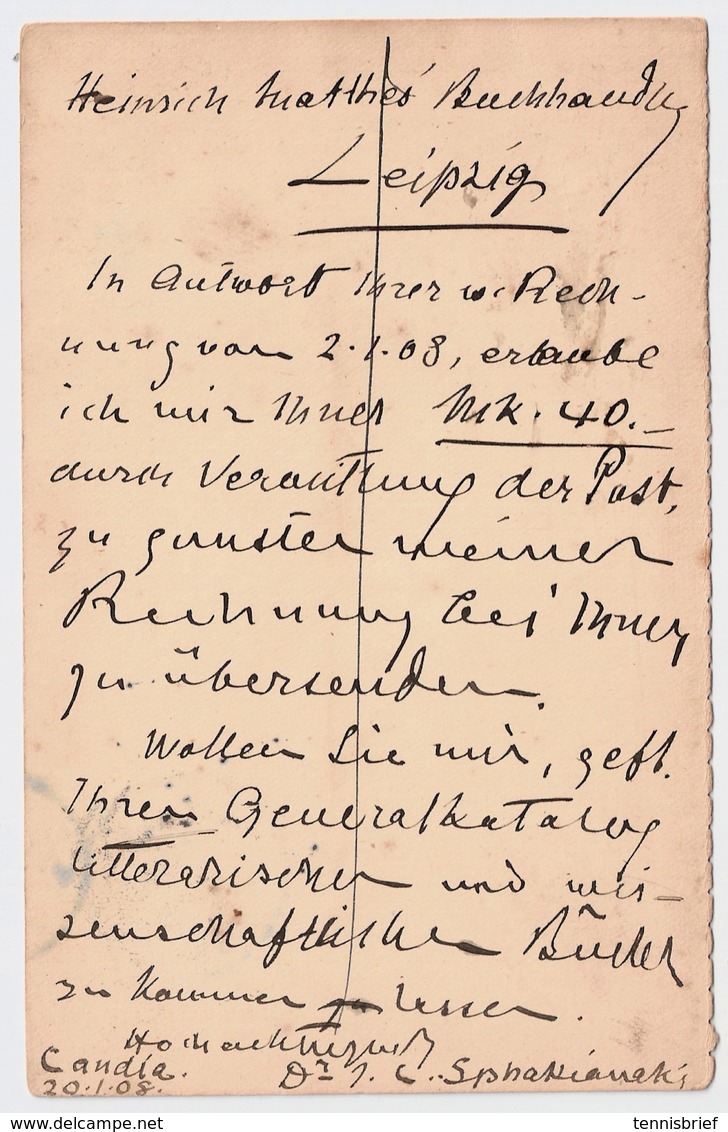 Heinrich Matthes' Buchhandlg
Leipzig
In Antwort Ihrer w. Rech-
nung vom 2.1.08, erlaube
ich mir Ihnen Mk. 40.-
durch Vermittlung der Post,
zu gunsten meiner
Rechnung bei Ihnen
zu übersenden.
Wollen Sie mir, gefl.
Ihren Generalkatalog
litterarischer und wis-
senschaftlicher Bücher
zu kommen zu lassen.
Hochachtungsvoll
Candia.
20.1.08.
Dr I. C. Sphakianakis
tennisbrief